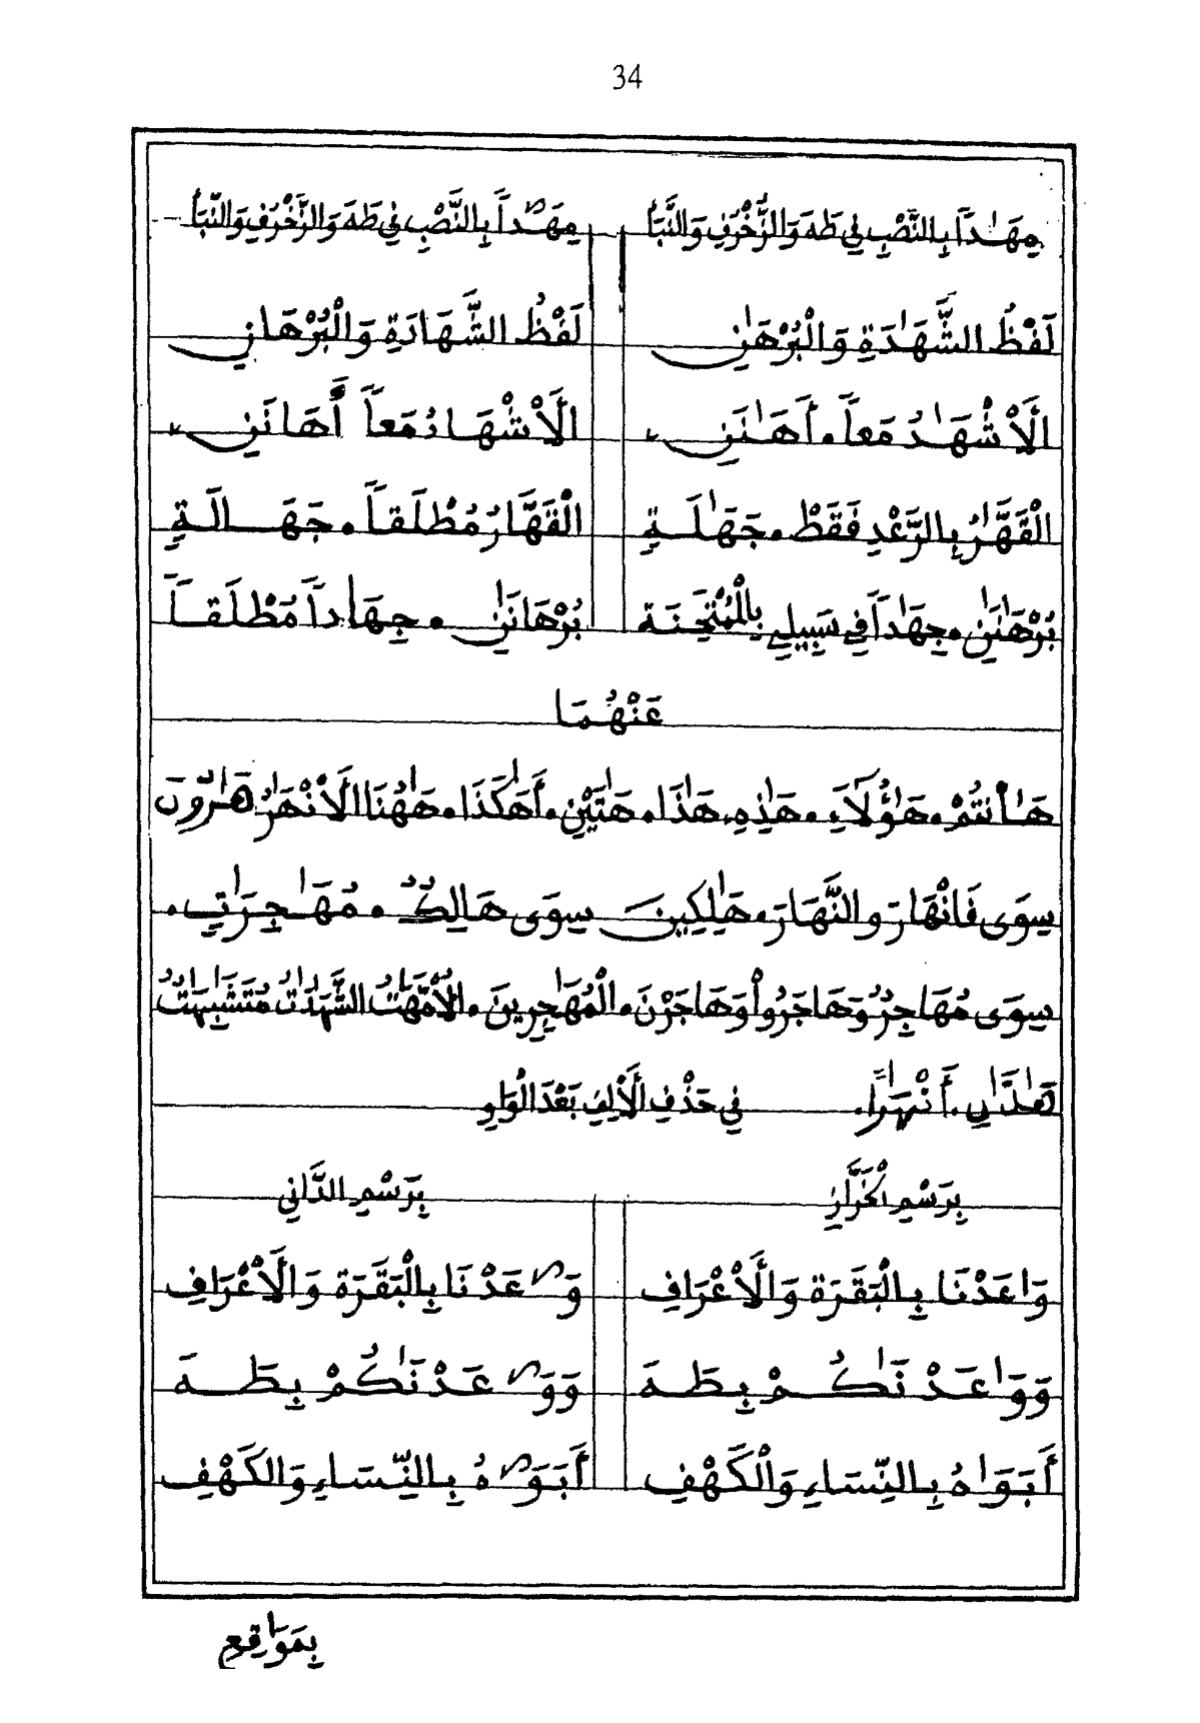 34
مِهَٰداً بِالنَّصْبِ فِي طَهَ وَالزُّخْرُفِ وَالنَّبَأِ مِهَٰداً بِالنَّصْبِ فِي طَهَ وَالزُّخْرُفِ وَالنَّبَأ
لَفْظُ الشَّهَٰدَةِ وَالْبُرْهَٰنِ لَفْظُ الشَّهَادَةِ وَالْبُرْهَانِ
الَاْشْهَٰدُ مَعاً • أَهَٰنَنِ الَاْشْهَادُ مَعاً أَهَانَنِ
الْقَهَّٰرُ بِالرَّعْدِ فَقَطْ • جَهَٰلَةٍ الْقَهَّارُ مُطْلَقاً • جَهَالَةٍ
بُرْهَٰنَٰنِ • جِهَٰداً فِي سَبِيلِي بِالْمُمْتَحِنَة بُرْهَانَٰنِ • جِهَاداً مُطْلَقاً
عَنْهُمَا
هَٰأَنتُمْ • هَٰؤُلَآءِ • هَٰذِهِ • هَٰذَا • هَٰتَيْنِ • أَهَٰكَذَا • هَٰهُنَا الَاْنْهَٰرُ هَٰرُونَ
سِوَى فَانْهَارَ وَالنَّهَارَ • هَٰلِكِينَ سِوَى هَالِكٌ • مُهَٰجِرَٰتٍ •
سِوَى مُهَاجِرٌ وَهَاجَرُواْ وَهَاجَرْنَ • الْمُهَٰجِرِينَ • الُاْمَّهَٰتُ الشَّهَٰدَٰتُ مُتَشَٰبِهَٰتٌ
هَٰذَٰنِ • أَنْهَٰراً • فِي حَذْفِ الَاْلِفِ بَعْدَ الْوَاوِ
بِرَسْمِ الْخَرَّازِ بِرَسْمِ الدَّانِي
وَاعَدْنَا بِالْبَقَرَة وَالَاْعْرَافِ وَٰعَدْنَا بِالْبَقَرَة وَالَاْعْرَافِ
وَوَاعَدْنَٰكُمْ بِطَهَ وَوَٰعَدْنَٰكُمْ بِطَهَ
أَبَوَاهُ بِالنِّسَاءِ وَالْكَهْفِ أَبَوَٰهُ بِالنِّسَاءِ وَالكَهْفِ
بِمَوَٰقِعِ